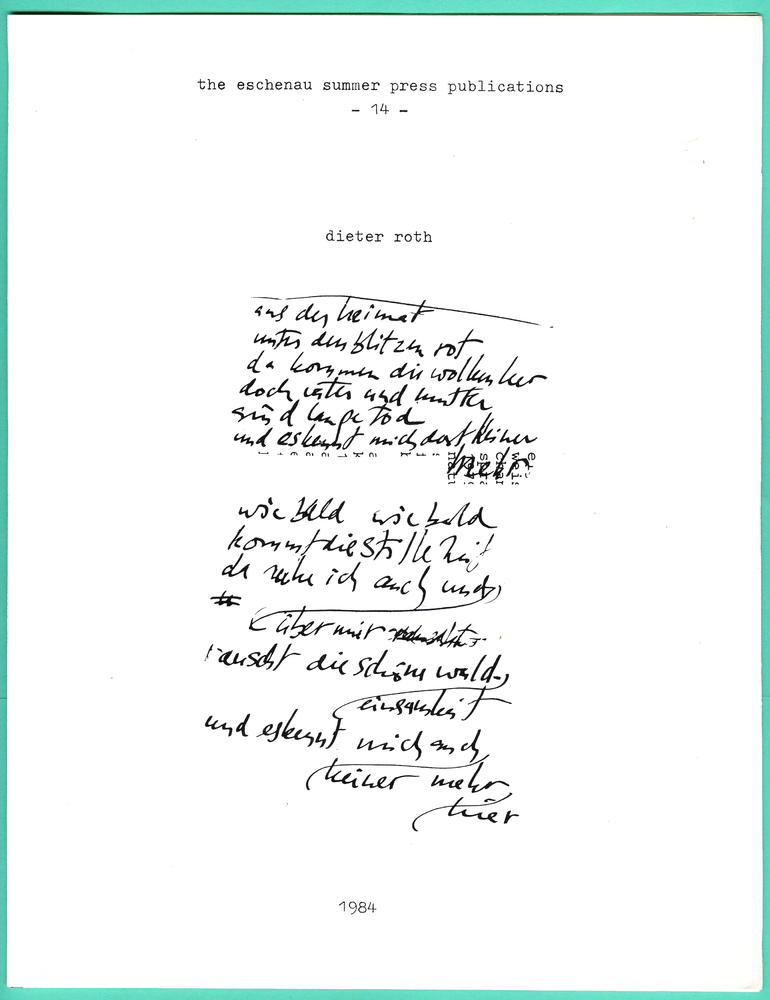 the eschenau summer press publications
- 14 -
dieter roth
aus der heimat
unter den blitzen rot
da kommen die wolken her
doch vater und mutter
sind lange tod
und es kennt mich dort keiner
mehr
wie bald wie bald
kommt die stille Zeit
da ruhe ich auch und
über mir
rauscht die schöne wald-
einsamkeit
und es kennt mich auch
keiner mehr
hier
1984